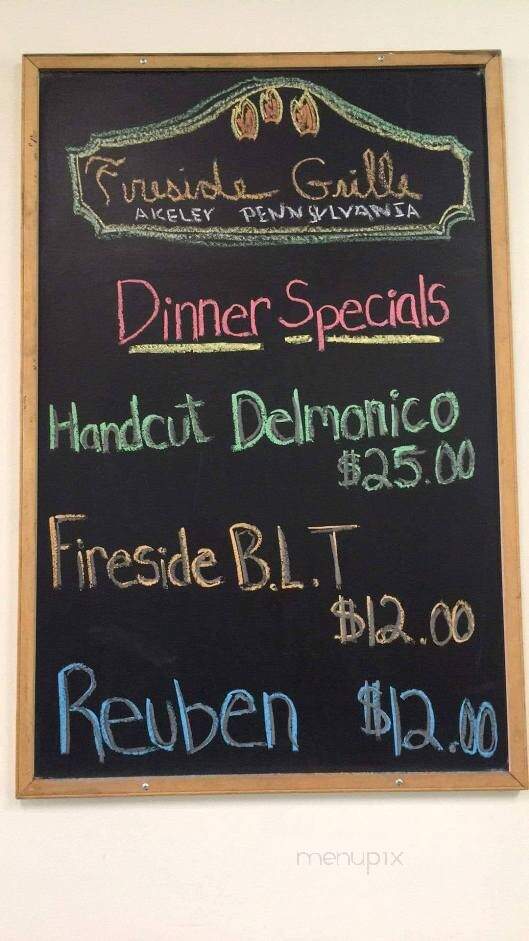 Fireside Grille
AKELEY PENNSYLVANIA
Dinner Specials
Handcut Delmonico
$25.00
Fireside B.L.T
$12.00
Reuben $12.00
menupix